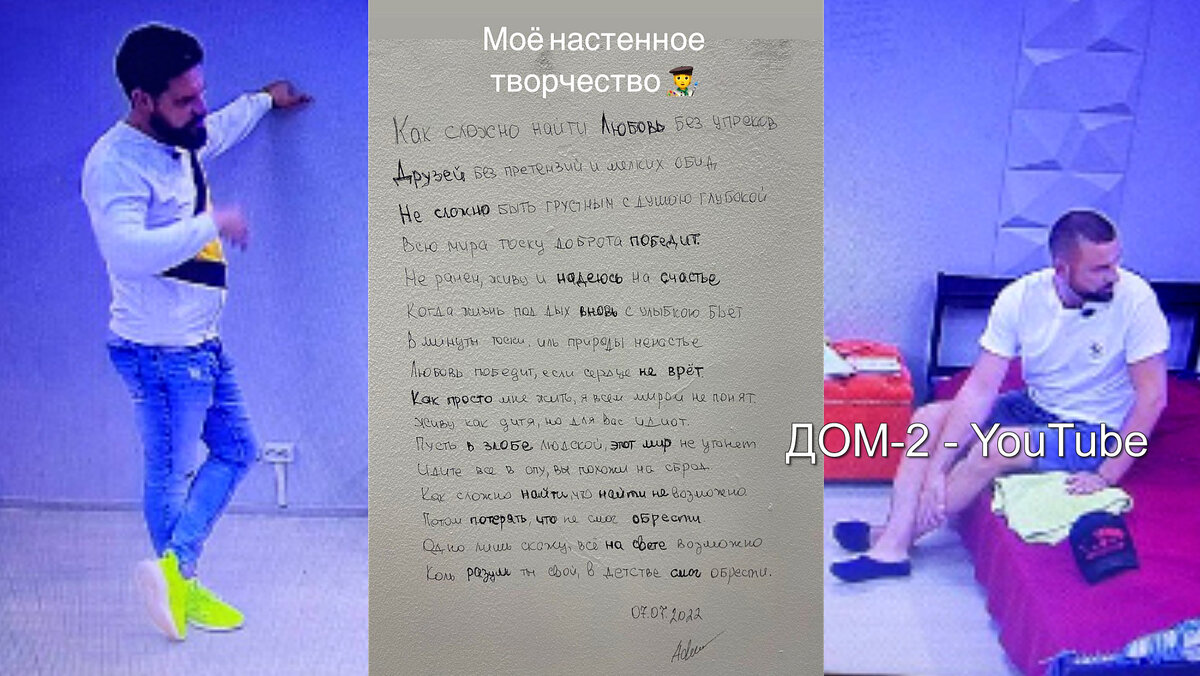 Моё настенное
творчество
Как сложно найти Любовь без упреков
Друзей без претензий и мелких обид,
Не сложно быть грустным с душою глубокой
Всю мира тоску доброта победит.
Не ранен, живу и надеюсь на счастье
Когда жизнь под дых вновь с улыбкою бьет
В минуты тоски, иль природы ненастье
Любовь победит, если сердце не врёт
Как просто мне жить, я всем миром не понят
Живу как дитя, но для вас идиот.
Пусть в злобе людской, этот мир не утонет
Идите все в опу, вы похожи на сброд.
Как сложно найти, что найти не возможно
Потом потерять, что не смог обрести
Одно лишь скажу, всё на свете возможно
Коль разум ты свой, в детстве смог обрести.
07.07.2022
ДОМ-2 - YouTube